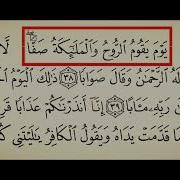 يَوْمَ يَقُومُ الرُّوحُ وَالْمَلَٰٓئِكَةُ صَفًّا ۖ لَّا
لَهُ الرَّحْمَٰنُ وَقَالَ صَوَابًا ﴿٣٨﴾ ذَٰلِكَ الْيَوْمُ ا
رَبِّهِۦ مَـَٔابًا ﴿٣٩﴾ إِنَّآ أَنذَرْنَٰكُمْ عَذَابًا قَرِ
مَا قَدَّمَتْ يَدَاهُ وَيَقُولُ الْكَافِرُ يَٰلَيْتَنِي كُ